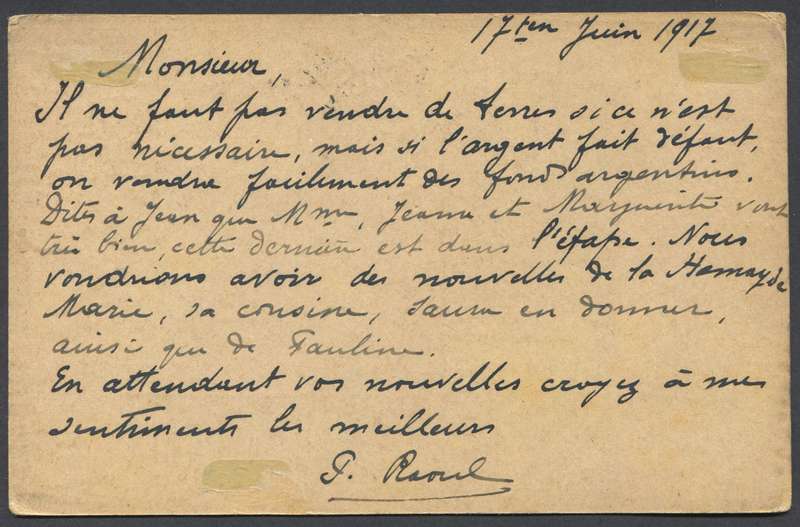 17ten Juin 1917
Monsieur,
Il ne faut pas vendre de terres si ce n'est
pas nécessaire, mais si l'argent fait défaut,
on vendra facilement des fonds argentins.
Dites à Jean que Mme, Jeanne et Marguerite vont
très bien, cette dernière est dans l'étape. Nous
voudrions avoir des nouvelles de la Hamayde
Marie, sa cousine, saura en donner,
ainsi que de Pauline.
En attendant vos nouvelles croyez à mes
sentiments les meilleurs
Raoul